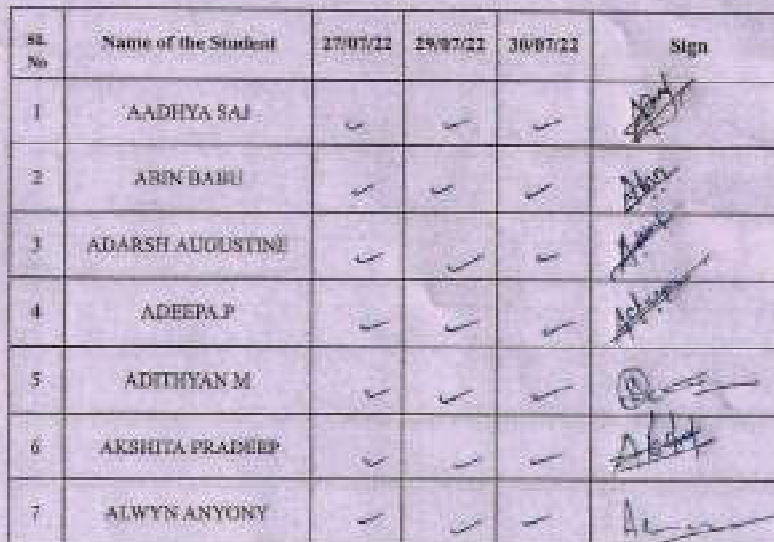 Sl. No Name of the Student 27/07/22 29/07/22 30/07/22 Sign
1 AADHYA SAJ
2 ABIN BABU
3 ADARSH AUGUSTINE
4 ADEEPA.P
5 ADITHYAN M
6 AKSHITA PRADEEP
7 ALWYN ANYONY